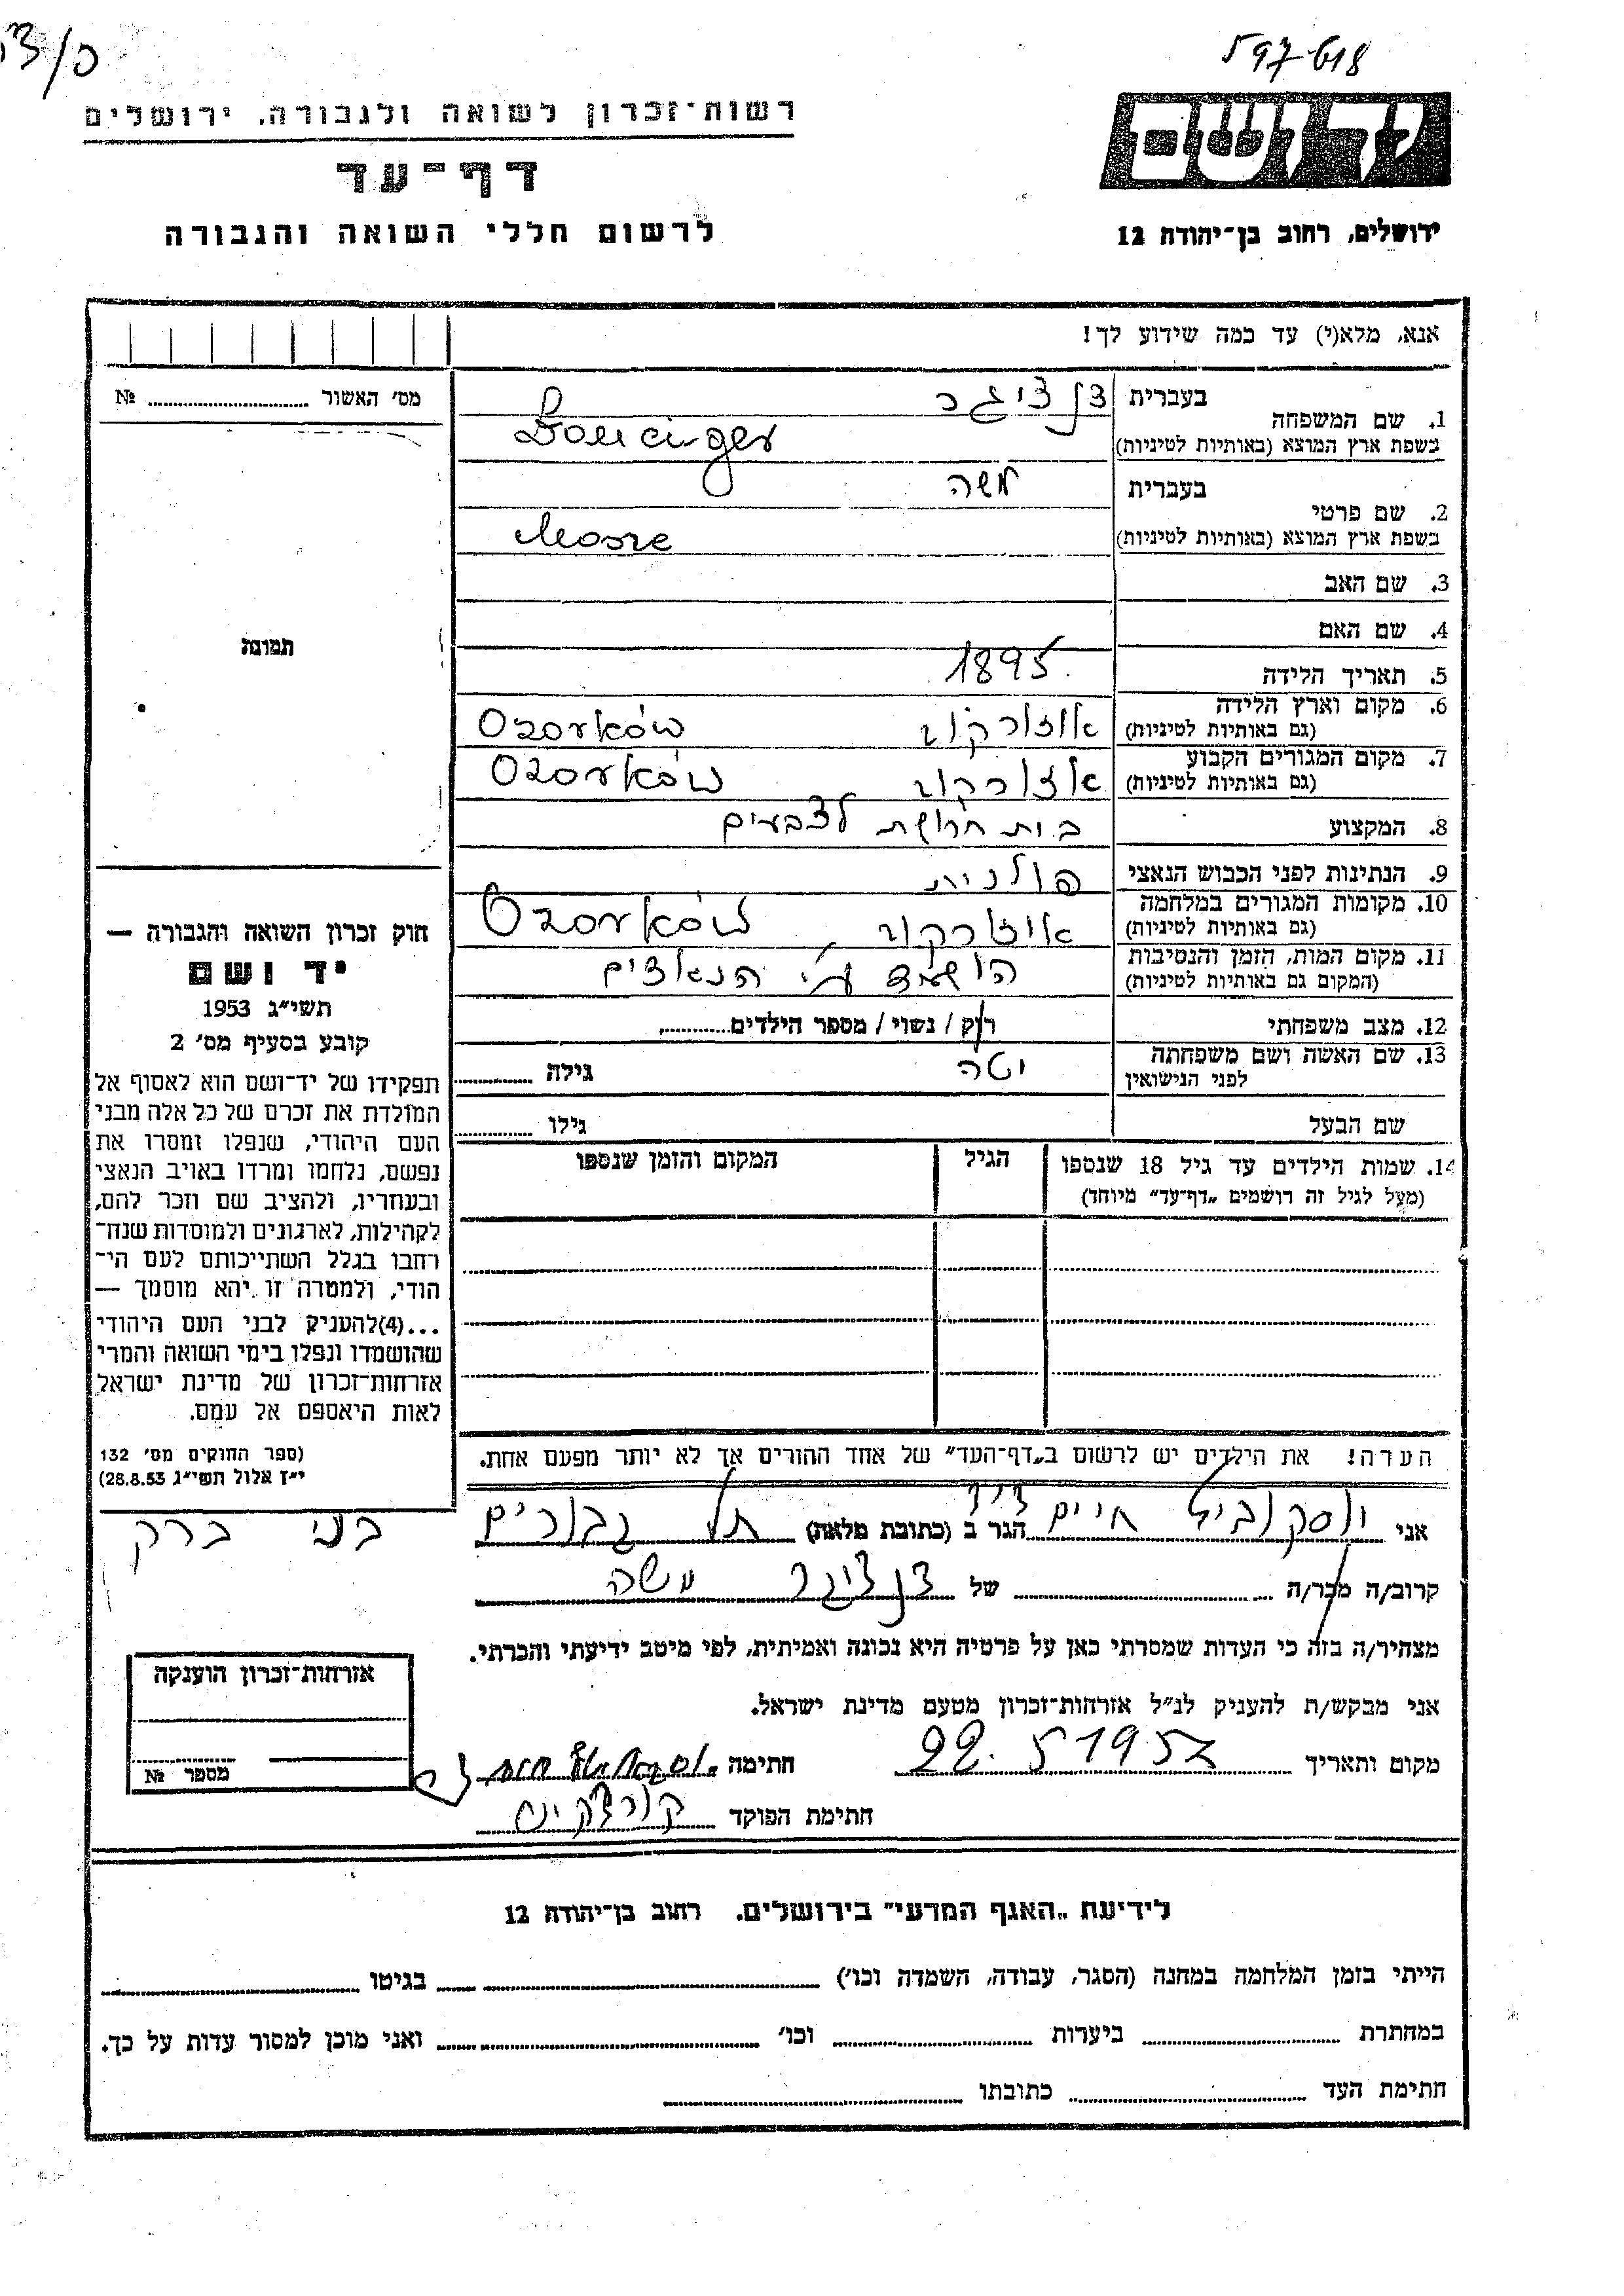 597618
ד/צו
רשות־זכרון לשואה ולגבורה, ירושלים
דף־עד
לרשום חללי השואה והגבורה
יד ושם
ירושלים, רחוב בן־יהודה 12
אנא, מלא(י) עד כמה שידוע לך!
מס׳ האשור № 
1. שם המשפחה בעברית דנציגר
בשפת ארץ המוצא (באותיות לטיניות) Dancinger
2. שם פרטי בעברית משה
בשפת ארץ המוצא (באותיות לטיניות) Mosze
3. שם האב
4. שם האם
5. תאריך הלידה 1895
6. מקום וארץ הלידה (גם באותיות לטיניות) אוזורקוב Ozorków
7. מקום המגורים הקבוע (גם באותיות לטיניות) אוזורקוב Ozorków
8. המקצוע בית חרושת לצבעים
9. הנתינות לפני הכבוש הנאצי פולנית
10. מקומות המגורים במלחמה (גם באותיות לטיניות) אוזורקוב Ozorków
11. מקום המות, הזמן והנסיבות (המקום גם באותיות לטיניות) הושמד ע״י הנאצים
12. מצב משפחתי רוק / נשוי / מספר הילדים
13. שם האשה ושם משפחתה לפני הנישואין יטה גילה
שם הבעל גילו
14. שמות הילדים עד גיל 18 שנספו הגיל המקום והזמן שנספו
(מעל לגיל זה רושמים „דף־עד״ מיוחד)
הערה! את הילדים יש לרשום ב„דף־העד״ של אחד ההורים אך לא יותר מפעם אחת.
תמונה
חוק זכרון השואה והגבורה —
יד ושם
תשי״ג 1953
קובע בסעיף מס׳ 2
תפקידו של יד־ושם הוא לאסוף אל
המולדת את זכרם של כל אלה מבני
העם היהודי, שנפלו ומסרו את
נפשם, נלחמו ומרדו באויב הנאצי
ובעוזריו, ולהציב שם וזכר להם,
לקהילות, לארגונים ולמוסדות שנח־
רבו בגלל השתייכותם לעם הי־
הודי, ולמטרה זו יהא מוסמך —
...(4)להעניק לבני העם היהודי
שהושמדו ונפלו בימי השואה והמרי
אזרחות־זכרון של מדינת ישראל
לאות היאספם אל עמם.
(ספר החוקים מס׳ 132
י״ז אלול תשי״ג 28.8.53)
אני וסקוביץ חיים דוד הגר ב (כתובת מלאה) תל גבורים בני ברק
קרוב/ה מכר/ה של דנציגר משה
מצהיר/ה בזה כי העדות שמסרתי כאן על פרטיה היא נכונה ואמיתית, לפי מיטב ידיעתי והכרתי.
אני מבקש/ת להעניק לנ״ל אזרחות־זכרון מטעם מדינת ישראל.
מקום ותאריך 22. 5 1957 חתימה
חתימת הפוקד
אזרחות־זכרון הוענקה
מספר №
לידיעת „האגף המדעי״ בירושלים. רחוב בן־יהודה 12
הייתי בזמן המלחמה במחנה (הסגר, עבודה, השמדה וכו׳) בגיטו
במחתרת ביערות וכו׳ ואני מוכן למסור עדות על כך.
חתימת העד כתובתו